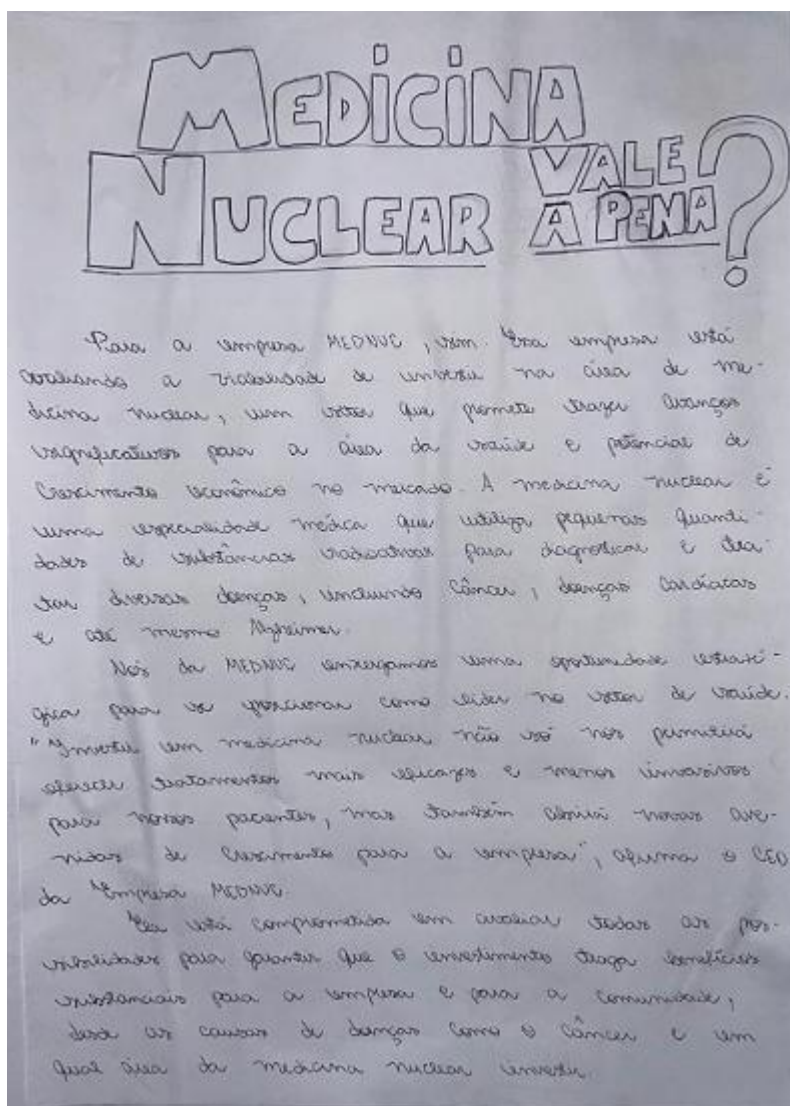 MEDICINA
NUCLEAR VALE A PENA?
Para a empresa MEDNUC, sim. Essa empresa está
avaliando a viabilidade de investir na área de me-
dicina nuclear, um setor que promete trazer avanços
significativos para a área da saúde e potencial de
crescimento econômico no mercado. A medicina nuclear é
uma especialidade médica que utiliza pequenas quanti-
dades de substâncias radioativas para diagnosticar e tra-
tar diversas doenças, incluindo câncer, doenças cardíacas
e até mesmo Alzheimer.
Nós da MEDNUC enxergamos uma oportunidade estraté-
gica para se posicionar como líder no setor de saúde.
"Investir em medicina nuclear não só nos permitirá
oferecer tratamentos mais eficazes e menos invasivos
para nossos pacientes, mas também abrirá novas ave-
nidas de crescimento para a empresa", afirma o CEO
da Empresa MEDNUC.
Ela está comprometida em avaliar todas as pos-
sibilidades para garantir que o investimento traga benefícios
substanciais para a empresa e para a comunidade,
desde as causas de doenças como o câncer e em
qual área da medicina nuclear investir.